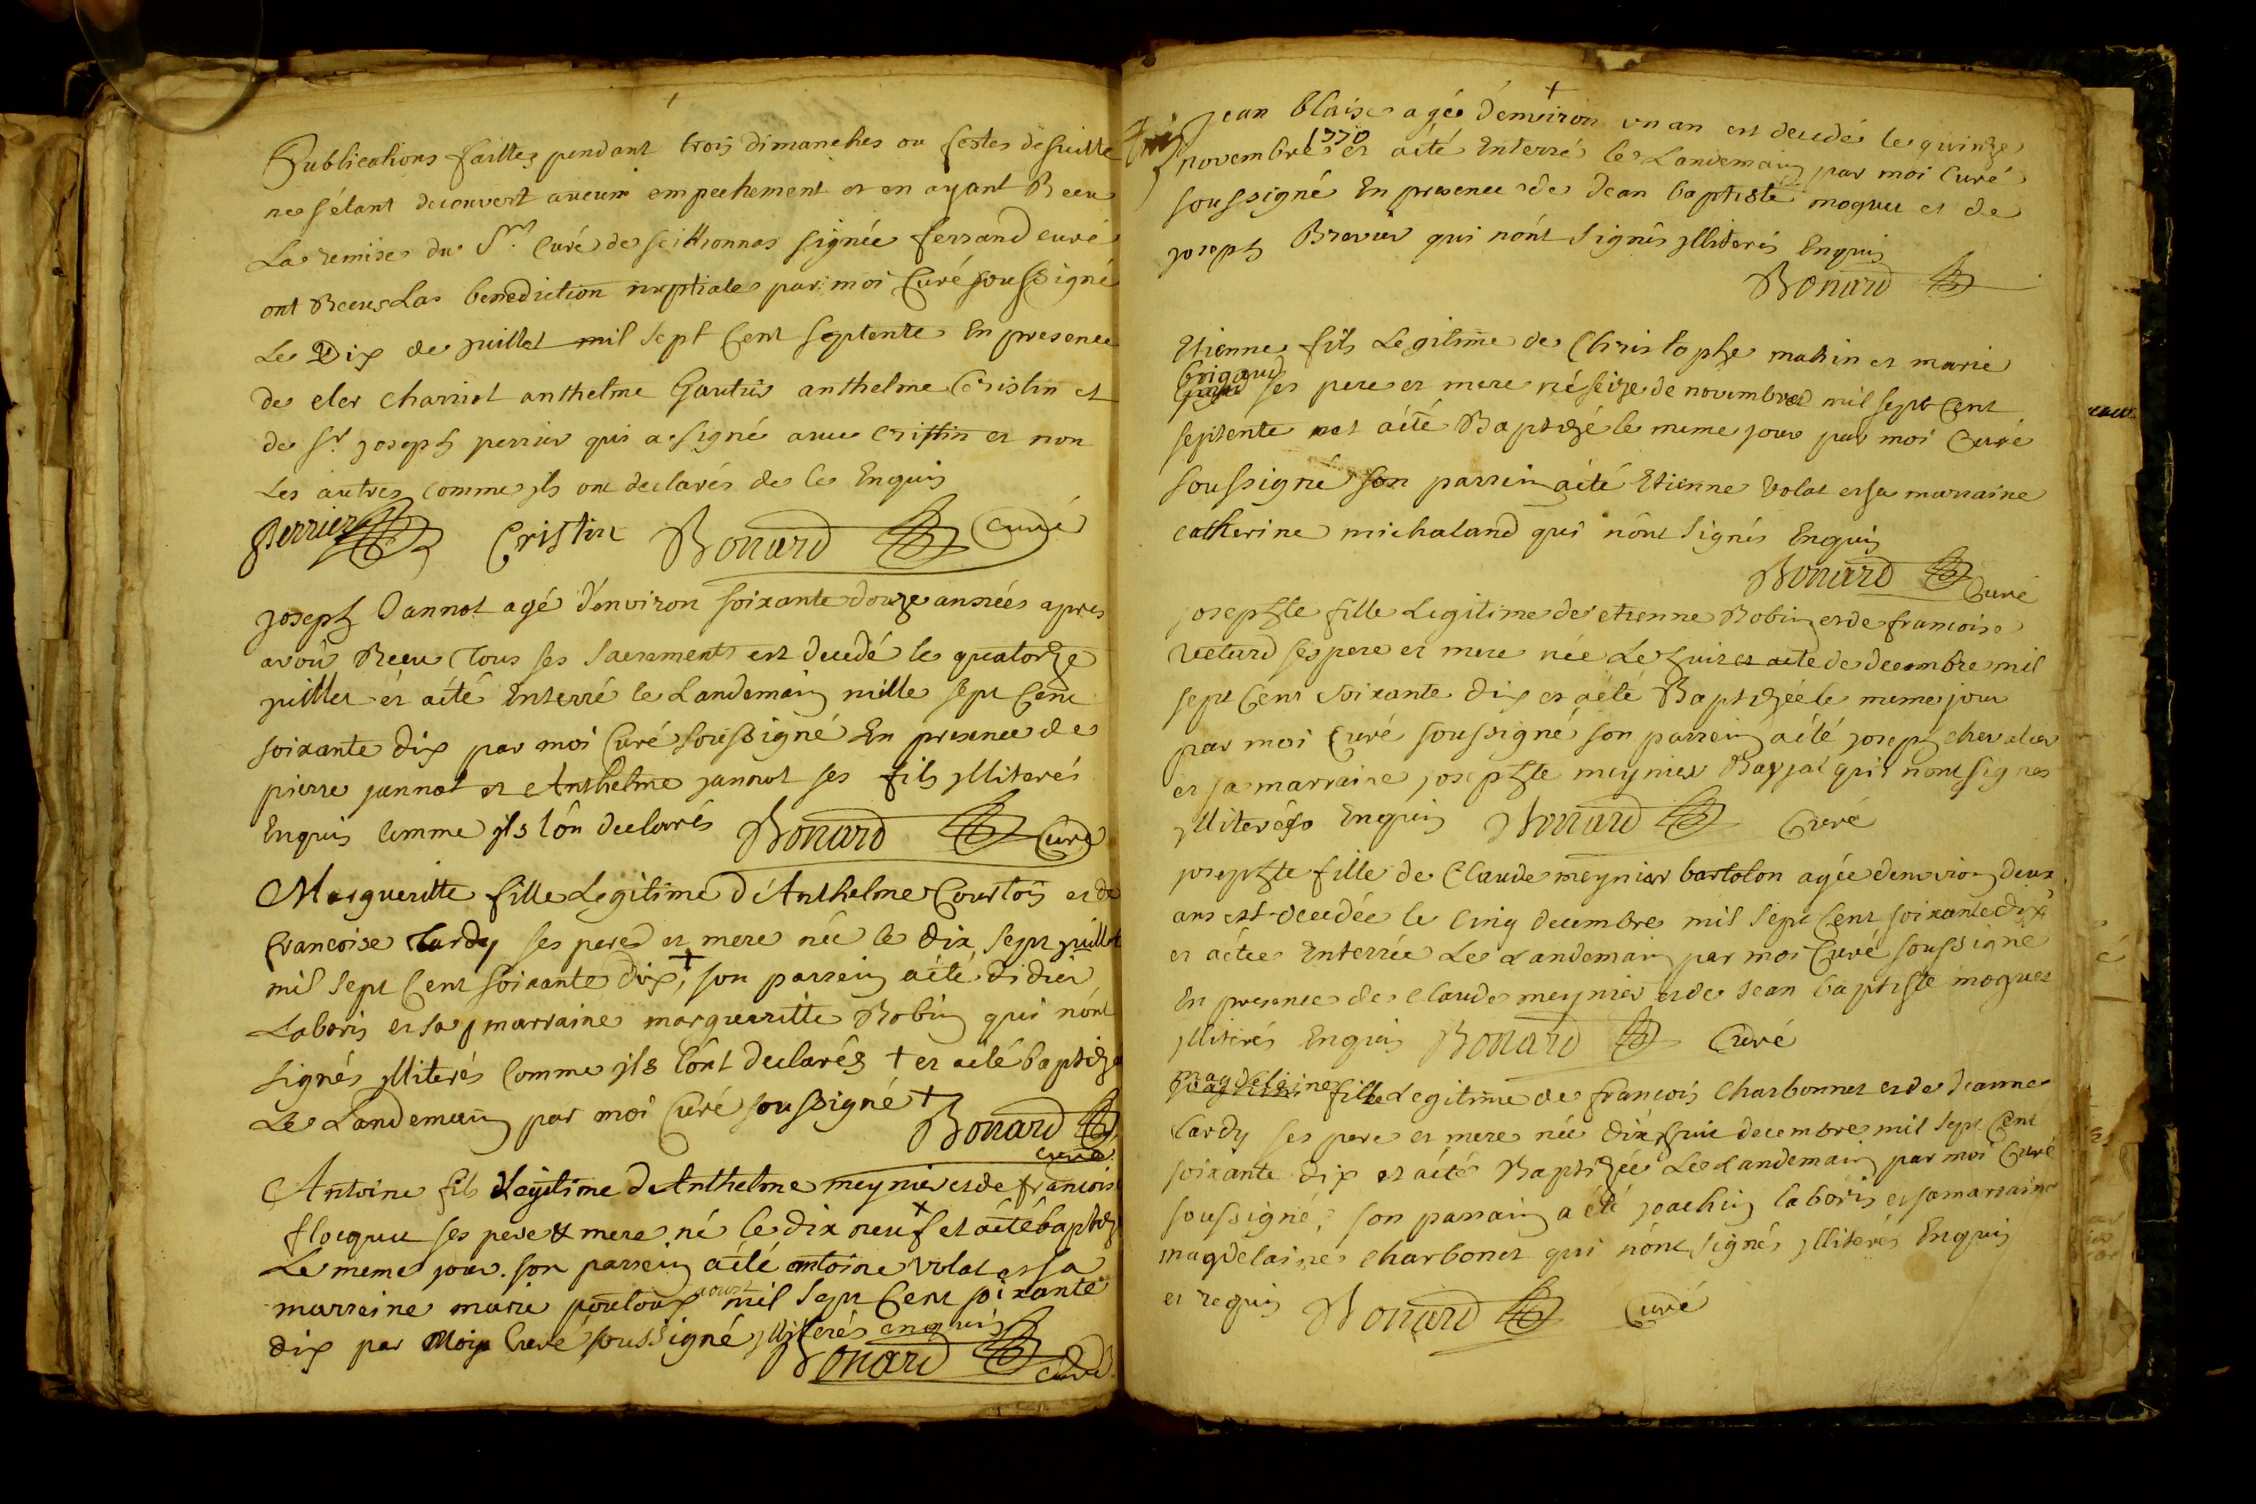 Publications faittes pendant trois dimanches ou festes de suitte
ne s'étant decouvert aucun empechement et en ayant Receu
La remise du Sr. Curé de seillonnas signée ferrand curé
ont Receus La benediction nuptiale par moi Curé soussigné
Le Dix de juillet mil sept Cent septente En presence
de cler charriot anthelme Gautier anthelme Cristin et
de Sr joseph perrier qui a signé avec Cristin et non
Les autres comme jls ont declarés de ce Enquis
Perrier Cristin Bonard Curé
joseph Jannot agé d'environ soixante douze années apres
avoir Receu tous ses sacrements est decedé le quatorze
juillet et aété Enterré le Landemain mille sept Cent
soixante dix par moi Curé soussigné En presence de
pierre jannot et Anthelme jannot ses fils jlliterés
Enquis comme jls lon declarés Bonard Curé
Margueritte fille Legitime d'Anthelme Courtois et de
francoise tardy ses pere et mere née le dix sept juillet
mil sept Cent soixante dix + son parrein aété didier
Laboris et sa marraine margueritte Robin qui n'ont
signés jlliterés comme jls l'ont declarés + et aété baptizée
Le Landemain par moi Curé soussigné +
Bonard
curé
Antoine fils Legitime d'Anthelme meynier et de francoise
flocquet ses pere & mere né le dix neuf + et aété baptizé
Le meme jour. son parrein aété antoine Volat et sa
marraine marie aoust mil sept Cent soixante
dix par moi Curé soussigné jlliterés enquis
Bonard curé
jean blaise agée d'environ un an est decedé le quinze
novembre 1770 et aété Enterré le Landemain par moi Curé
soussigné En presence de Jean baptiste moquet et de
joseph Brevier qui n'ont signés jlliterés Enquis
Bonard
Etienne fils Legitime de Christophe mathin et marie
brigand ses pere et mere né seize de novembre mil sept Cent
septente et aété Baptizé le meme jour par moi Curé
soussigné son parrein aété Etienne Volat et sa marraine
catherine michaland qui n'ont signés Enquis
Bonard Curé
josephte fille Legitime de etienne Robin et de francoise
Veturd ses pere et mere née Le huit et aété de decembre mil
sept Cent soixante dix et aété Baptizée le meme jour
par moi Curé soussigné son parrein aété joseph chevalier
et sa marraine josephte meynier Bayjat qui n'ont signés
jlliterés Enquis Bonard Curé
josephte fille de Claude meynier bartolon agée d'environ deux
ans est decedée le cinq decembre mil sept Cent soixante dix
et aétée Enterrée Le Landemain par moi Curé soussigné
En presence de Claude meynier et de Jean baptiste moquet
jlliterés Enquis Bonard Curé
magdeleine fille Legitime de francois Charbonnet et de Jeanne
tardy ses pere et mere née dix huit decembre mil sept Cent
soixante dix et aété Baptizée Le Landemain par moi Curé
soussigné, son parrain a été joachin laboris et sa marraine
magdelaine Charbonet qui n'ont signés jlliterés Enquis
et requis Bonard Curé